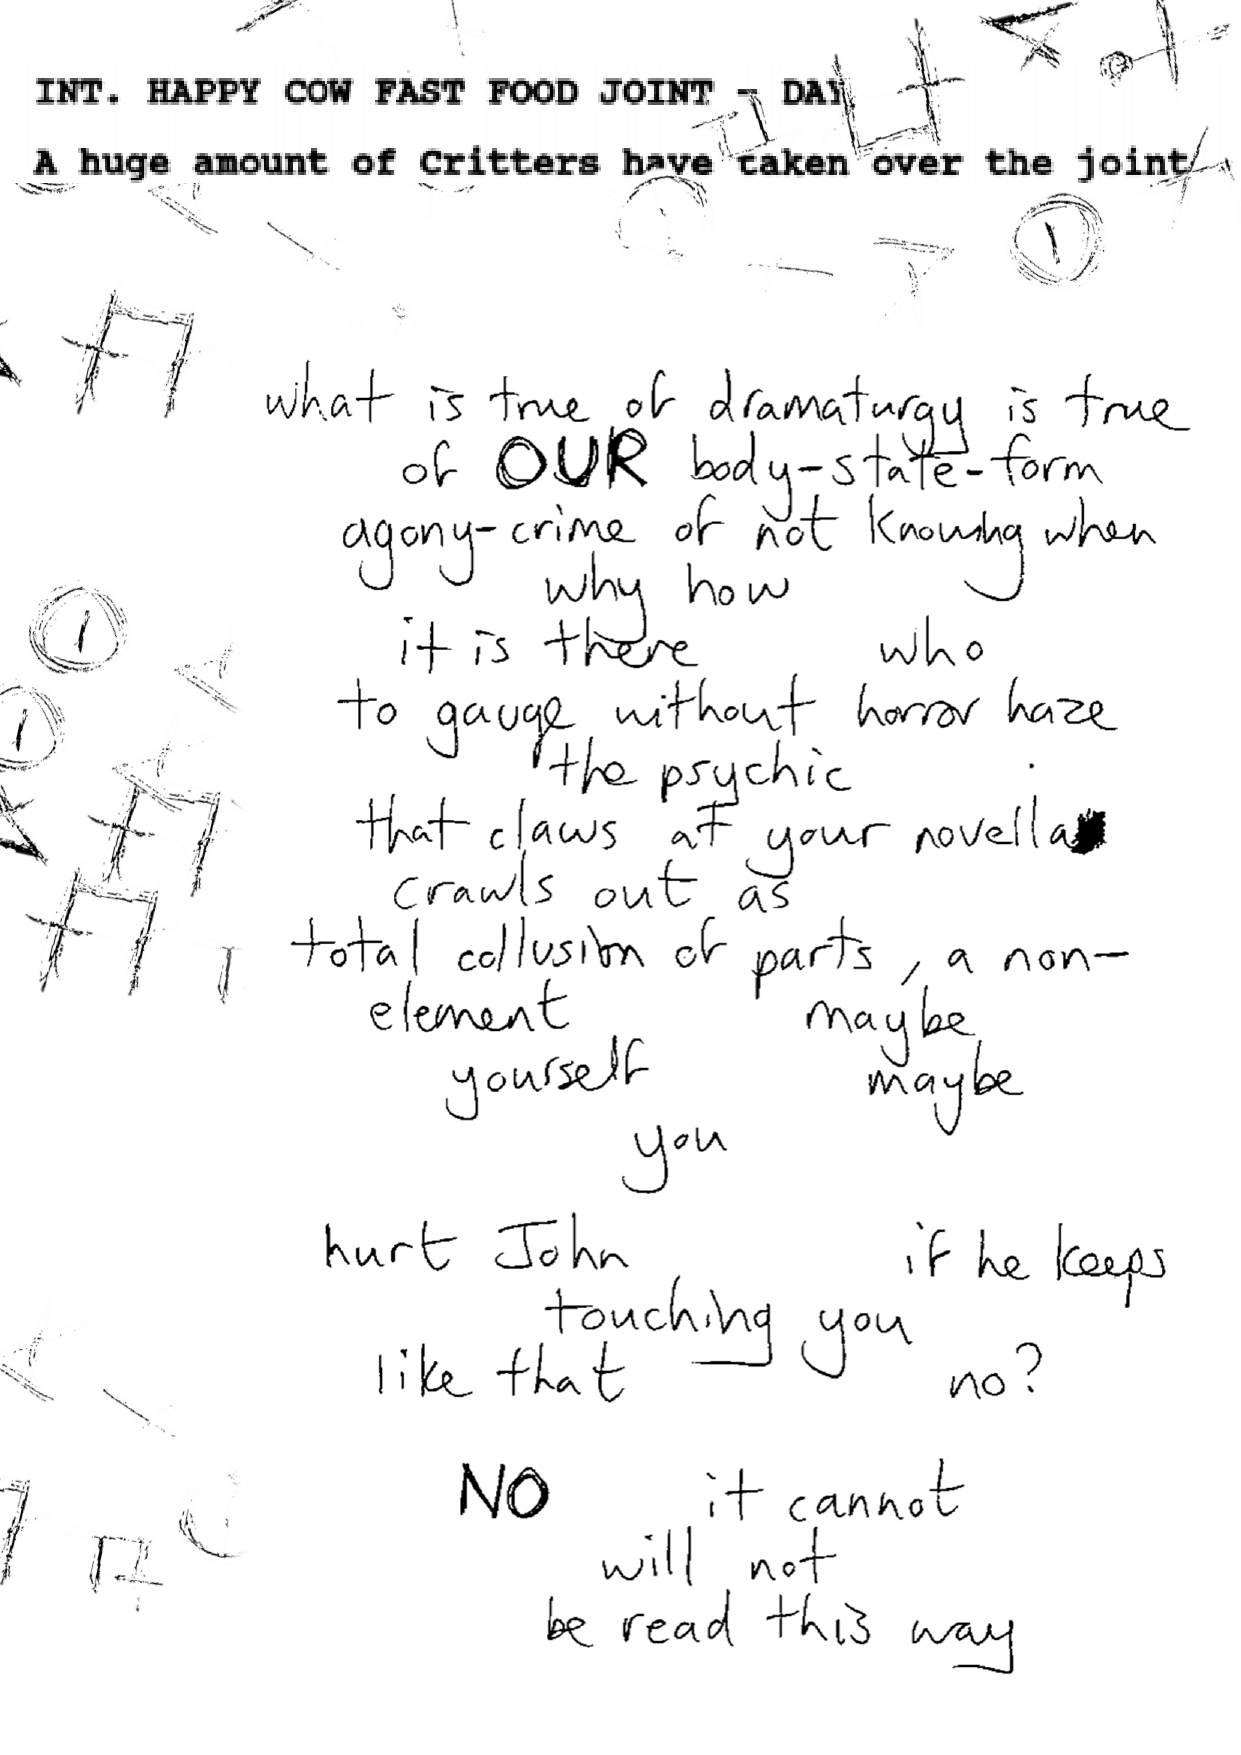 INT. HAPPY COW FAST FOOD JOINT - DAY
A huge amount of Critters have taken over the joint
what is true of dramaturgy is true
of OUR body-state-form
agony-crime of not knowing when
why how
it is there who
to gauge without horror haze
the psychic
that claws at your novella
crawls out as
total collusion of parts, a non-
element maybe
yourself maybe
you
hurt John if he keeps
touching you
like that no?
NO it cannot
will not
be read this way